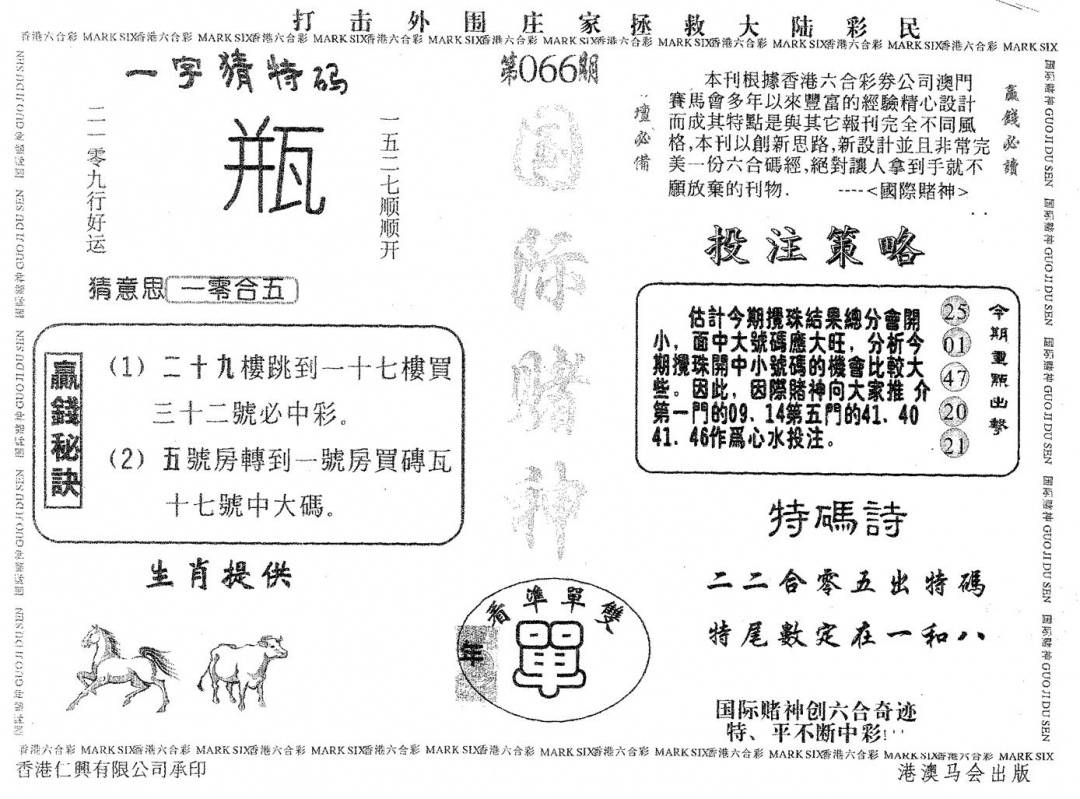 打击外围庄家拯救大陆彩民
香港六合彩 MARK SIX香港六合彩 MARK SIX香港六合彩 MARK SIX香港六合彩 MARK SIX香港六合彩 MARK SIX香港六合彩 MARK SIX香港六合彩 MARK SIX香港六合彩 MARK SIX香港六合彩 MARK SIX
一字猜特码
二一零九行好运
瓶
一五二七顺顺开
猜意思 一零合五
贏錢秘訣
(1) 二十九樓跳到一十七樓買
三十二號必中彩。
(2) 五號房轉到一號房買磚瓦
十七號中大碼。
生肖提供
第066期
国际赌神
看準單雙
年
單
壇必備
本刊根據香港六合彩券公司澳門
賽馬會多年以來豐富的經驗精心設計
而成其特點是與其它報刊完全不同風
格,本刊以創新思路,新設計並且非常完
美一份六合碼經,絕對讓人拿到手就不
願放棄的刊物. ----<國際賭神>
贏錢必讀
投注策略
估計今期攪珠結果總分會開
小，面中大號碼應大旺，分析今
期攪珠開中小號碼的機會比較大
些。因此，因際賭神向大家推 介
第一門的09、14第五門的41、40
41、46作爲心水投注。
25
01
47
20
21
今期重點出擊
特碼詩
二二合零五出特碼
特尾數定在一和八
国际赌神创六合奇迹
特、平不断中彩!
国际赌神 GUO JI DU SEN 国际赌神 GUO JI DU SEN 国际赌神 GUO JI DU SEN 国际赌神 GUO JI DU SEN 国际赌神 GUO JI DU SEN
香港六合彩 MARK SIX香港六合彩 MARK SIX香港六合彩 MARK SIX香港六合彩 MARK SIX香港六合彩 MARK SIX香港六合彩 MARK SIX香港六合彩 MARK SIX香港六合彩 MARK SIX香港六合彩 MARK SIX
香港仁興有限公司承印
港澳马会出版